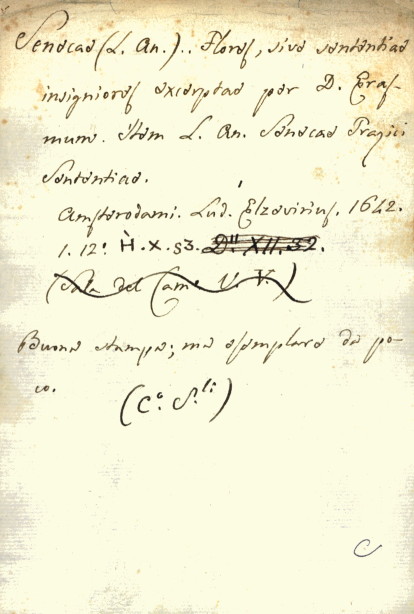 Senecae (L. An.).. Flores, sive sententiae
insigniores excerptae per D. Eras-
mum. Item L. An. Senecae Tragici
Sententiae.
Amsterodami. Lud. Elzevirius. 1642.
1. 12º. H. X. 53. D.II XII. 32.
(Sala del Cam. V. V.)
Buona stampa; ma esemplare da po-
co.
(Cº. S.li)
C